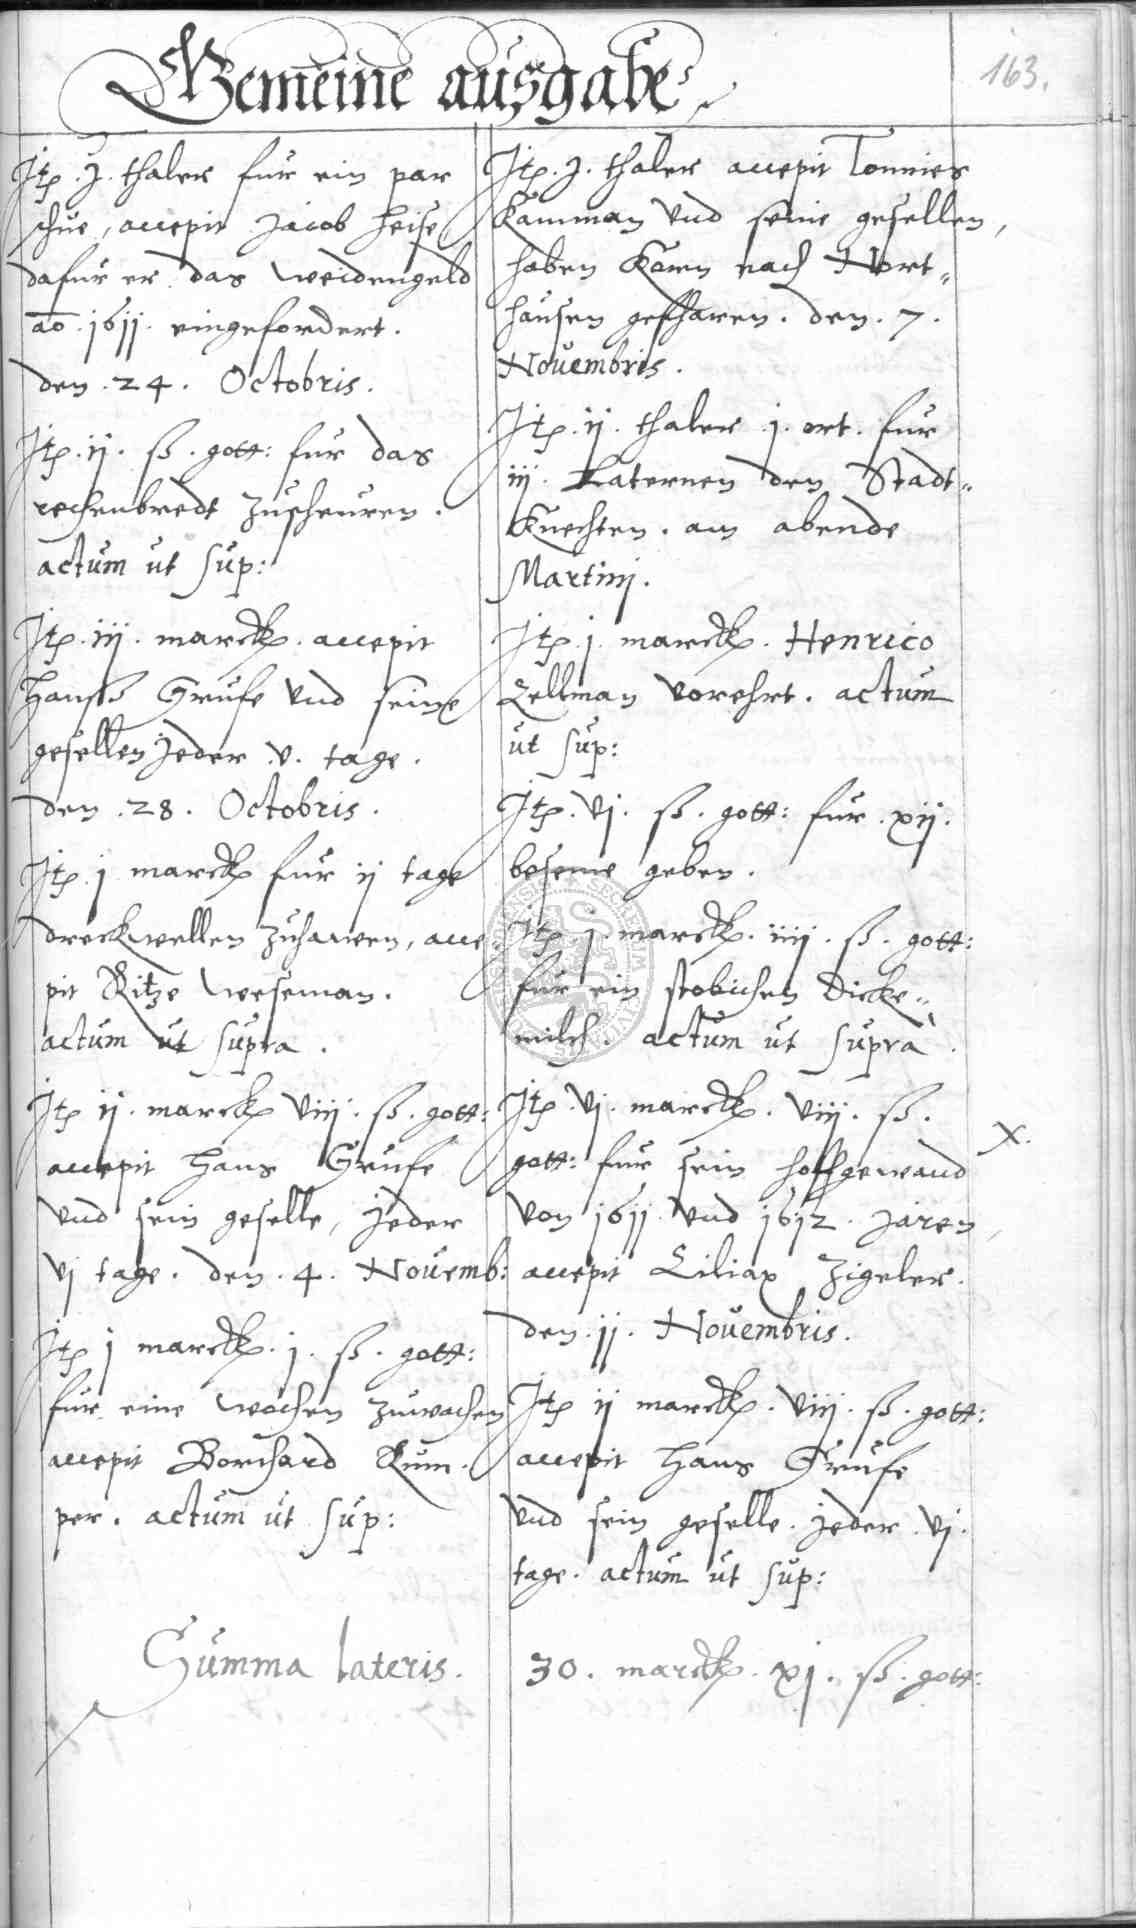 Gemeine ausgabe
163.
Itp. j. thaler fur ein par
schue, accepit Jacob Heise
dafur er das weidengeld
ao. 1611. eingefordert.
den. 24. Octobris.
Itp. ij. ß. gott: fur das
rechenbredt zuscheuren.
actum ut sup:
Itp. iij. marck. accepit
Hanß Grufe vnd seine
gesellen jeder .v. tage.
den. 28. Octobris.
Itp j marck fur ij tage
dreckwellen zuhawen, acce-
pit Ritze Weseman.
actum ut supra.
Itp ij. marck viij. ß. gott:
accepit Hans Grufe
vnd sein geselle, jeder
vj tage. den. 4. Novemb:
Itp j marck. j. ß. gott:
fur eine wochen zuwachen
accepit Borchard Kum-
per. actum ut sup:
Itp. j. thaler accepit Tonnies
Kamman vnd seine gesellen,
haben Korn nach Nort-
hausen gefharen. den. 7.
Novembris.
Itp. ij. thaler .j. ort. fur
iij. Laternen den Stadt-
Knechten. am abende
Martinj.
Itp. j. marck. Henrico
Zellman vorehrt. actum
ut sup:
Itp. vj. ß. gott: fur .xij.
beseme geben.
Itp. j. marck. iiij. ß. gott:
fur ein stobichen Dicke-
milch. actum ut supra.
Itp. vj. marck. viij. ß.
x.
gott: fur sein hoffgewand
von 1611 vnd 1612. jaren,
accepit Ciliax Zigeler.
den. 11. Novembris.
Itp ij marck. viij. ß. gott:
accepit Hans Grufe
vnd sein geselle. jeder .vj.
tage. actum ut sup:
Summa lateris. 30. marck. xj. ß. gott: